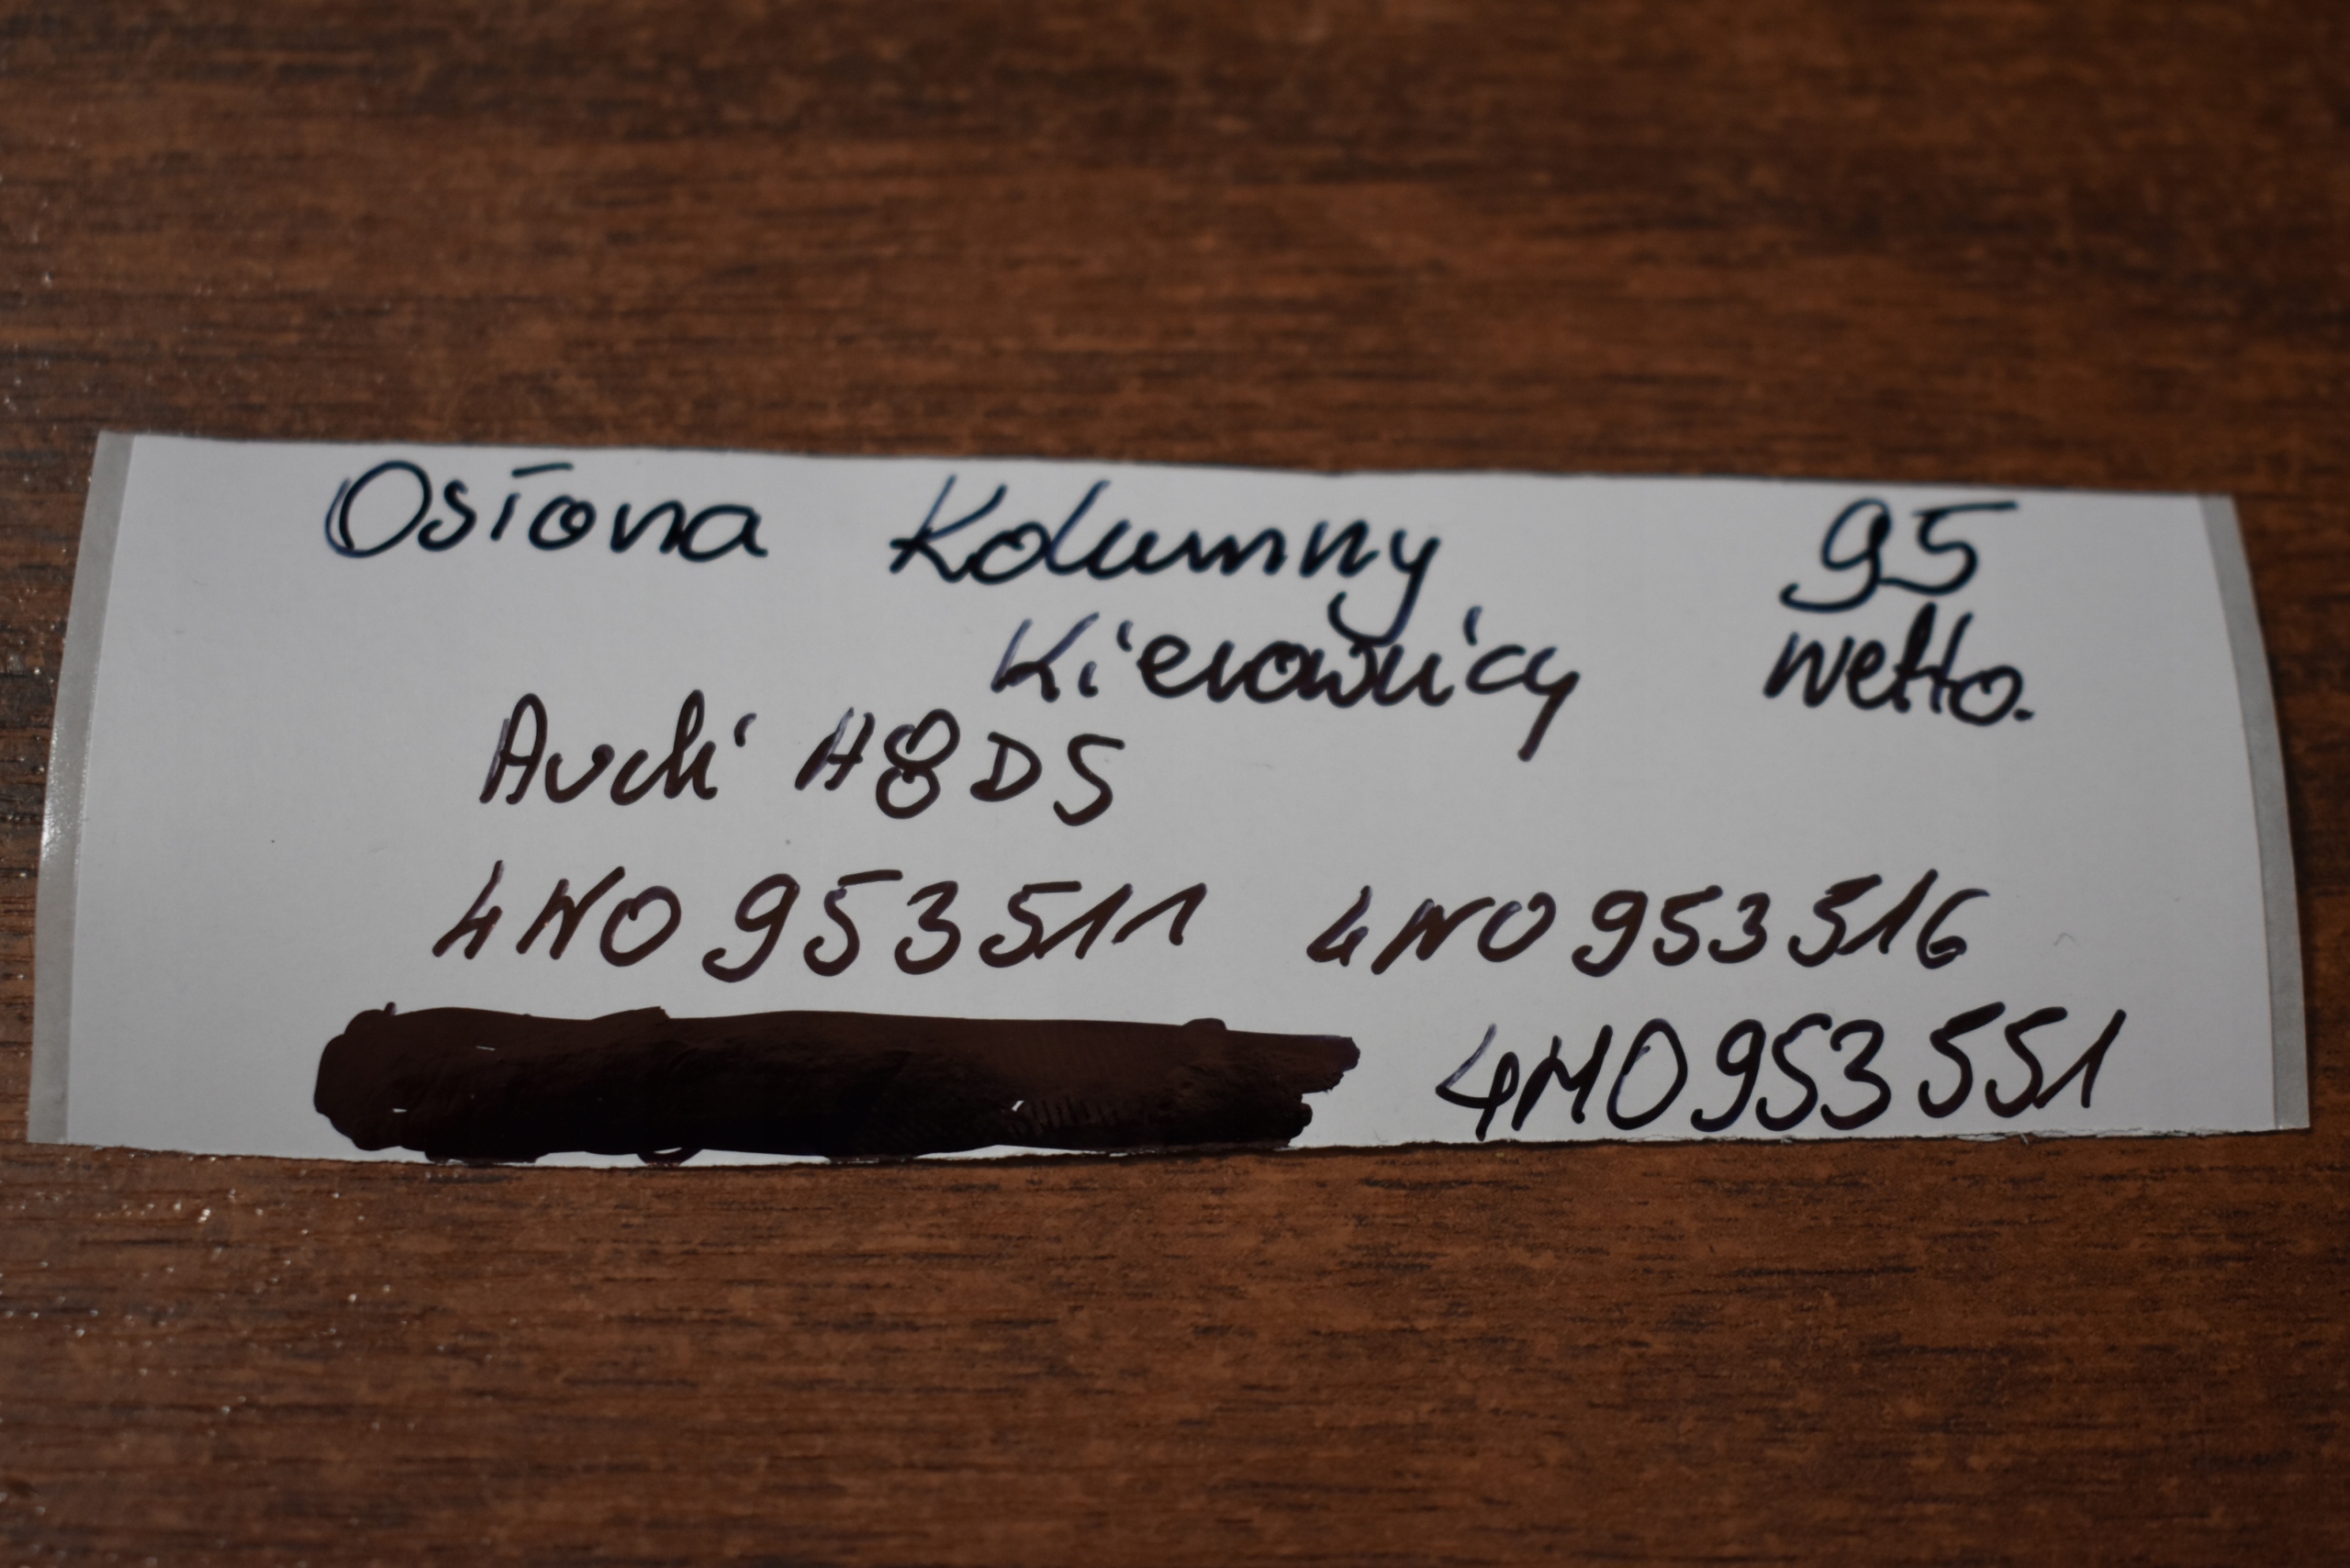 Osłona Kolumny 95
Kierownicy netto.
Audi A8 D5
4N0 953 511 4N0 953 516
4M0 953 551